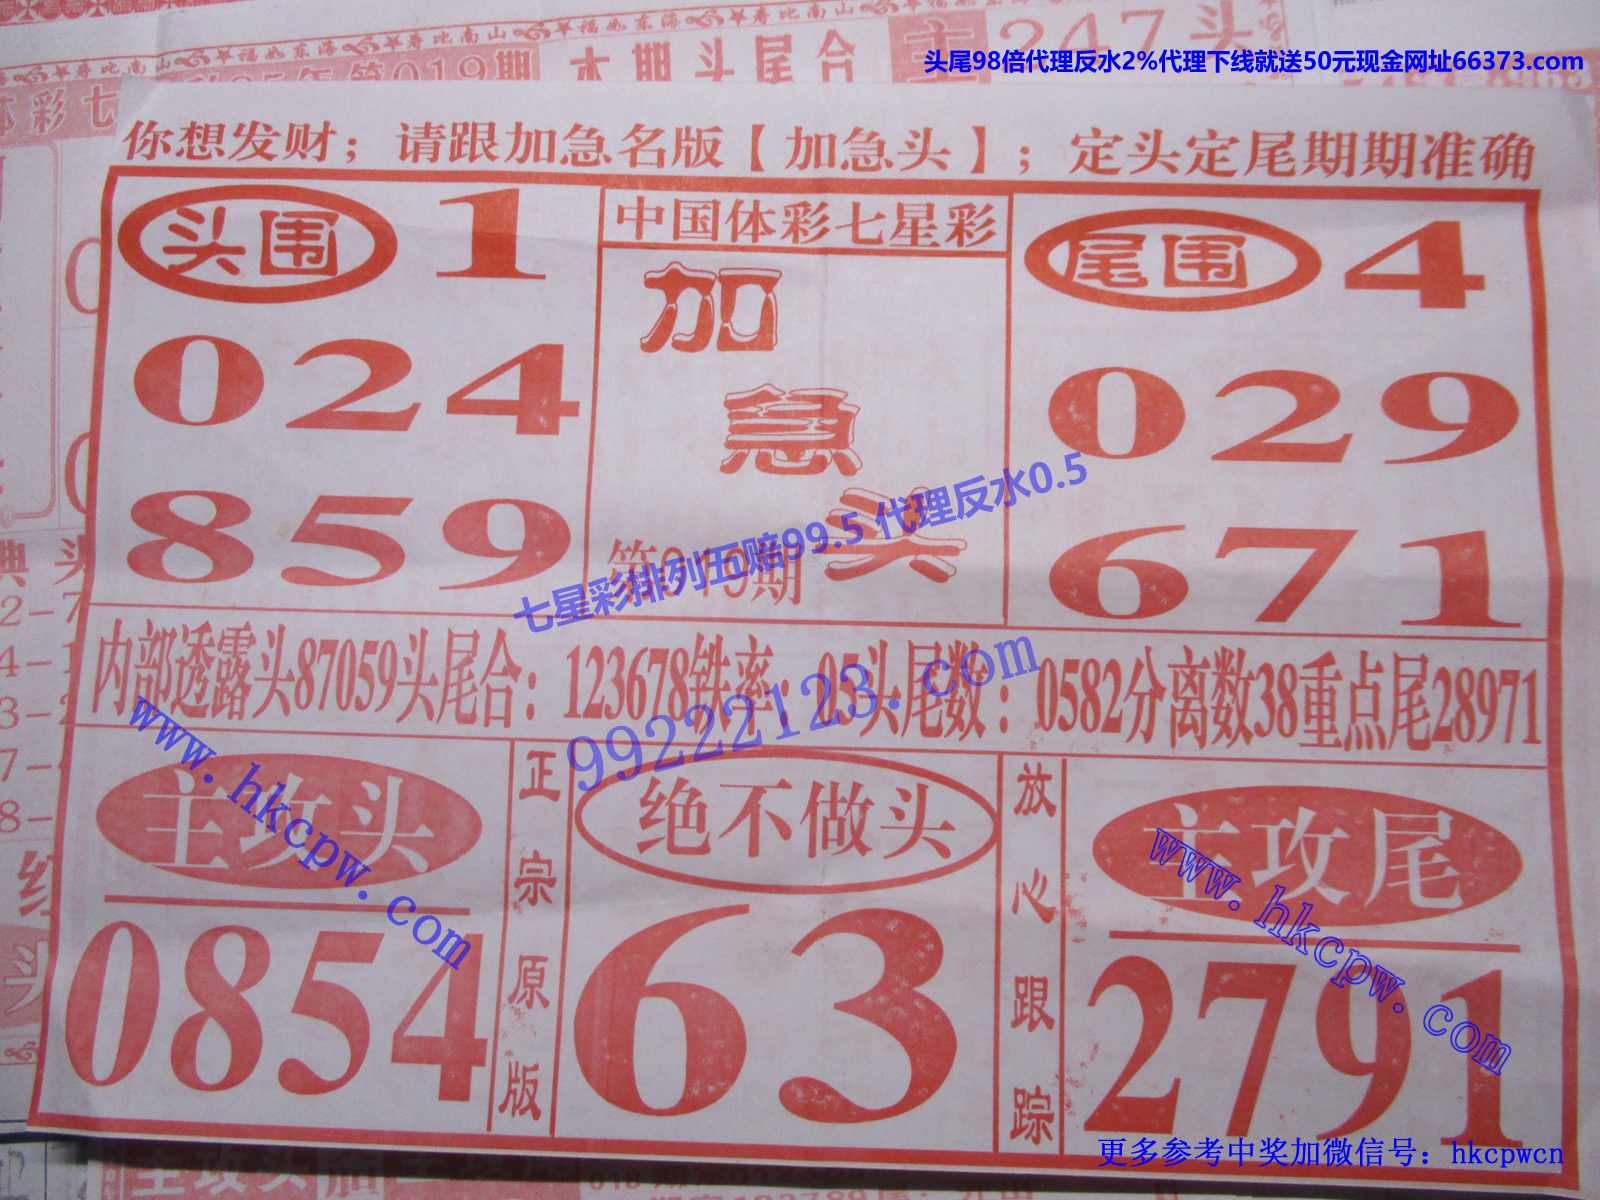 福如东海 寿比南山 福如东海 寿比南山 福如东海 寿比南山
年第019期 本期头尾合 主247头
体彩七
头尾98倍代理反水2%代理下线就送50元现金网址66373.com
你想发财；请跟加急名版【加急头】；定头定尾期期准确
头围 1
024
859
中国体彩七星彩
加
急
头
第019期
尾围 4
029
671
七星彩排列五赔99.5 代理反水0.5
内部透露头87059头尾合：123678铁率：05头尾数：0582分离数38重点尾28971
99222123.com
www.hkcpw.com
主攻头
0854
正宗原版
绝不做头
63
放心跟踪
主攻尾
2791
www.hkcpw.com
更多参考中奖加微信号：hkcpwcn
主攻头